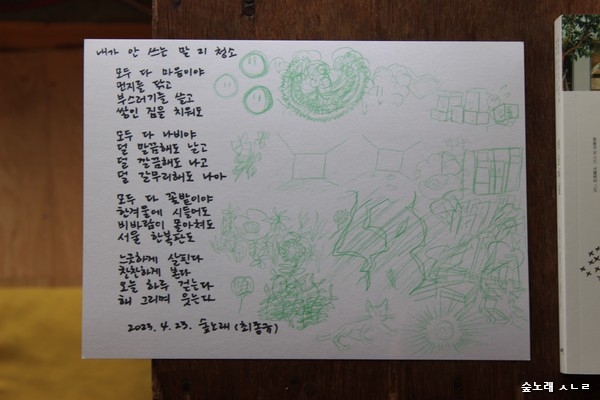 내가 안 쓰는 말 리 청소
모두 다 마음이야
먼지를 닦고
부스러기를 쓸고
쌓인 짐을 치워도
모두 다 나비야
덜 말끔해도 날고
덜 깔끔해도 나고
덜 갈무리해도 나아
모두 다 꽃밭이야
한겨울에 시들어도
비바람이 몰아쳐도
서울 한복판도
느긋하게 살핀다
찬찬하게 본다
오늘 하루 걷는다
해 그리며 웃는다
2023. 4. 23. 숲노래 (최종규)
숲노래 ㅅㄴㄹ